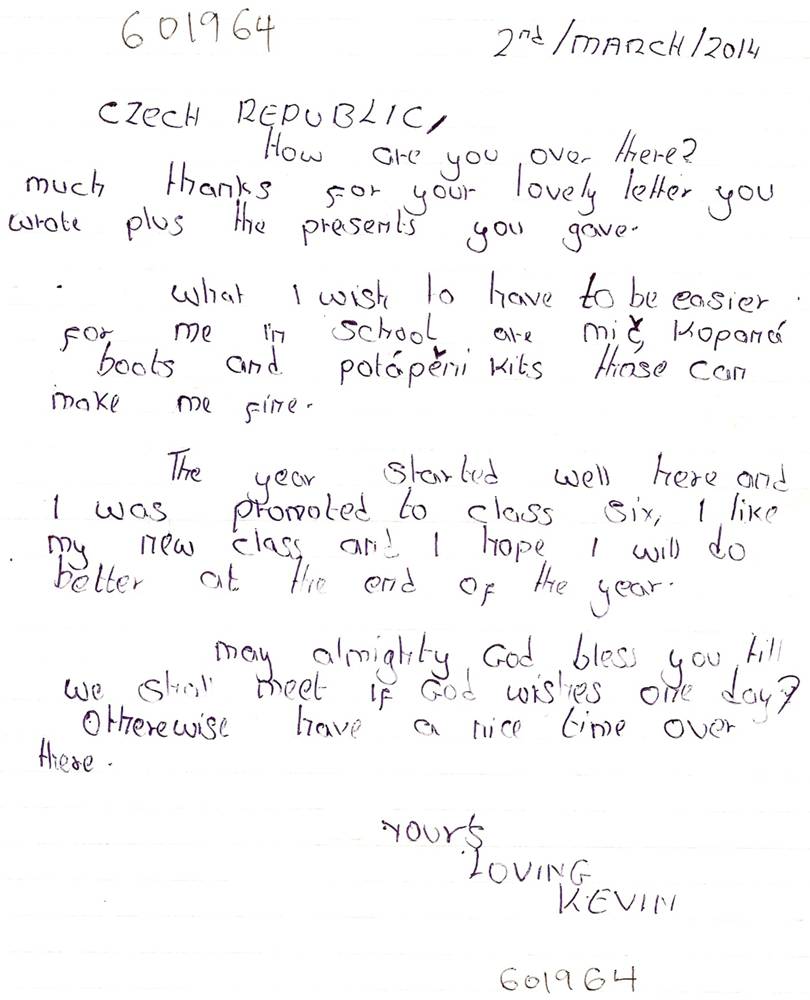 601964
2nd/MARCH/2014
CZECH REPUBLIC,
How are you over there?
much thanks for your lovely letter you
wrote plus the presents you gave.
what I wish to have to be easier
for me in school are míč, Kopaná
boots and potápění kits those can
make me fine.
The year started well here and
I was promoted to class six, I like
my new class and I hope I will do
better at the end of the year.
may almighty God bless you till
we shall meet if God wishes one day?
Otherewise have a nice time over
there.
Yours
LOVING
KEVIN
601964